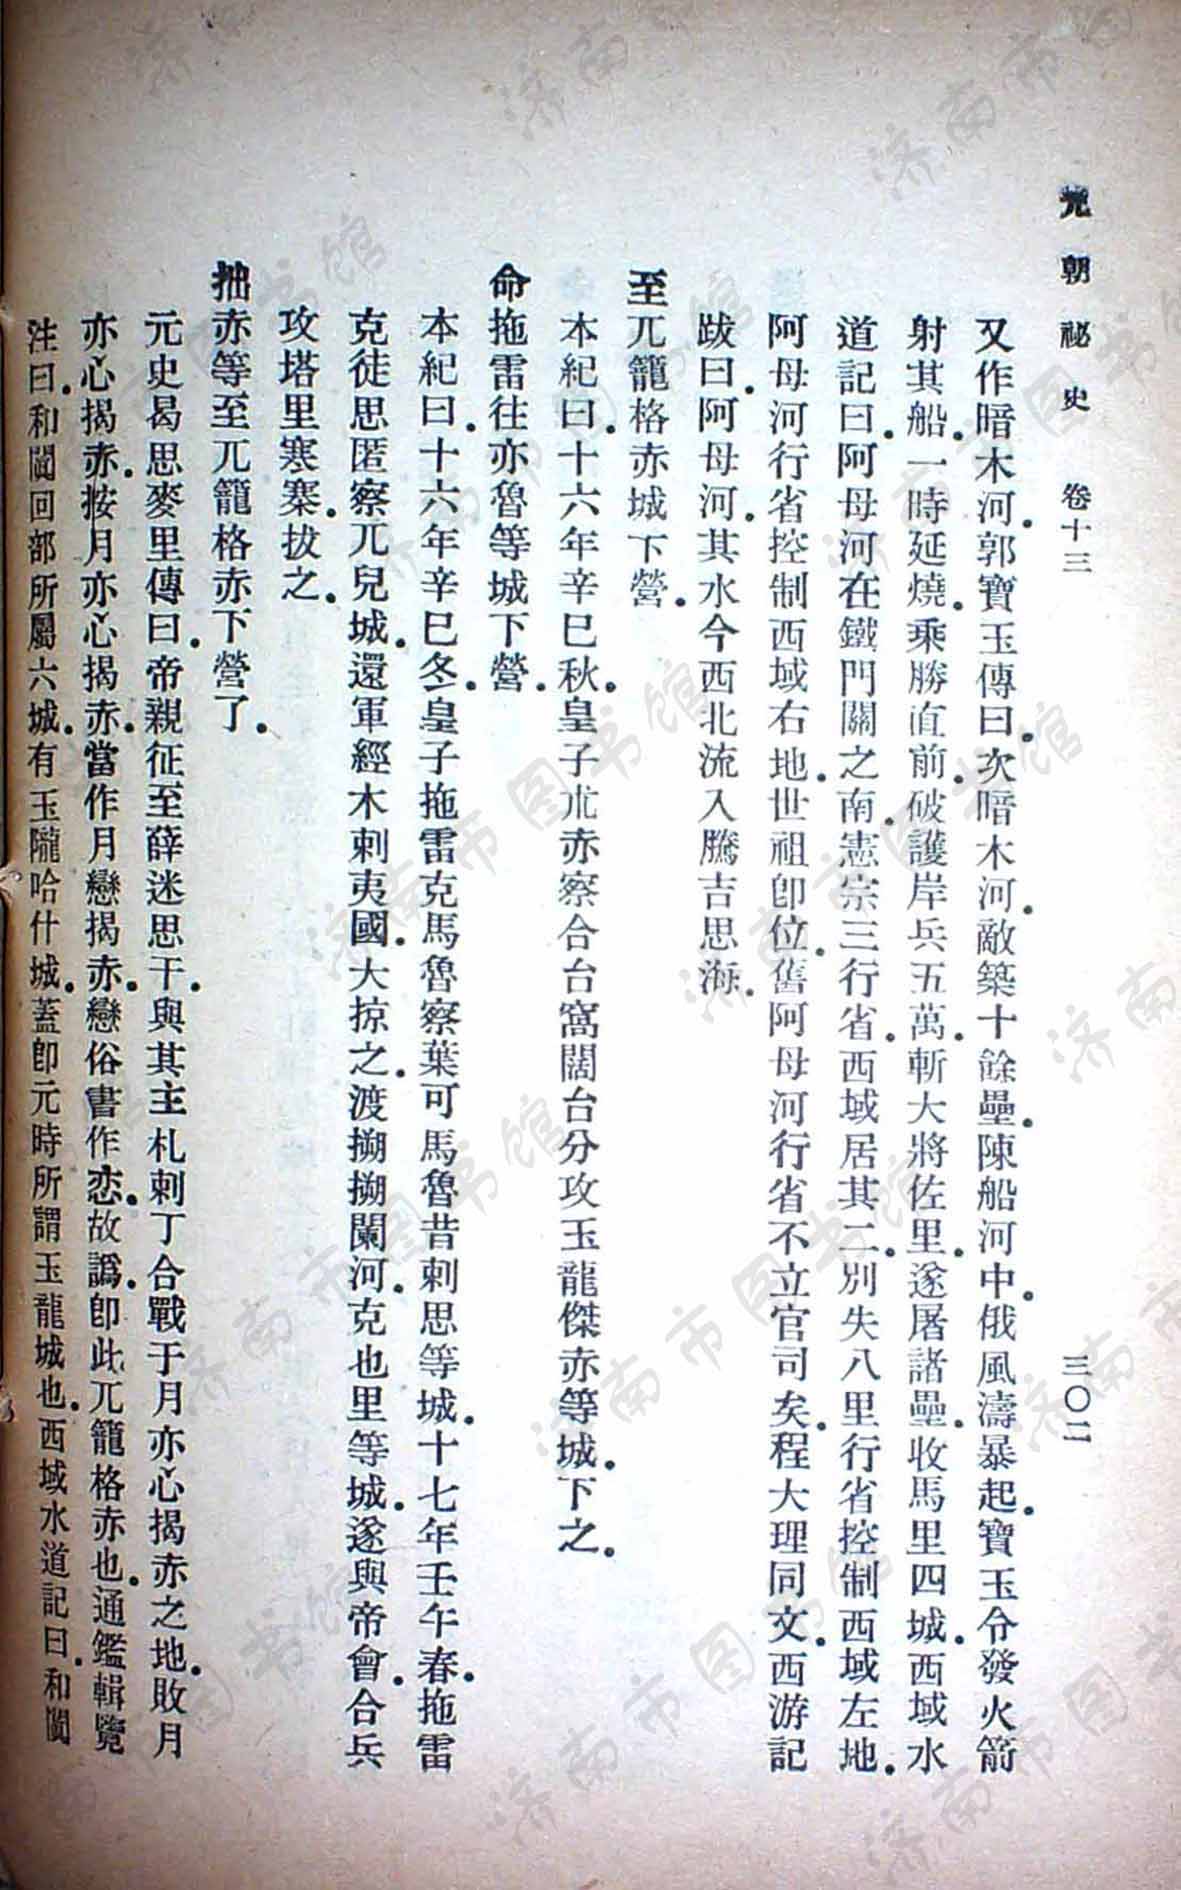 元朝祕史　卷十三　三〇二
又作暗木河.郭寶玉傳曰.次暗木河.敵築十餘壘.陳船河中.俄風濤暴起.寶玉令發火箭
射其船.一時延燒.乘勝直前.破護岸兵五萬.斬大將佐里.遂屠諸壘.收馬里四城.西域水
道記曰.阿母河在鐵門關之南.憲宗三行省.西域居其二.別失八里行省控制西域左地.
阿母河行省控制西域右地.世祖卽位.舊阿母河行省不立官司矣.程大理同文.西游記
跋曰.阿母河.其水今西北流入騰吉思海.
至兀籠格赤城下營.
本紀曰.十六年辛巳秋.皇子朮赤察合台窩闊台分攻玉龍傑赤等城.下之.
命拖雷往亦魯等城下營.
本紀曰.十六年辛巳冬.皇子拖雷克馬魯察葉可馬魯昔剌思等城.十七年壬午春.拖雷
克徒思匿察兀兒城.還軍經木剌夷國.大掠之.渡搠搠闌河.克也里等城.遂與帝會.合兵
攻塔里寒寨.拔之.
拙赤等至兀籠格赤下營了.
元史曷思麥里傳曰.帝親征至薛迷思干.與其主札剌丁合戰于月亦心揭赤之地.敗月
亦心揭赤.按月亦心揭赤.當作月戀揭赤.戀俗書作恋.故譌.卽此兀籠格赤也.通鑑輯覽
注曰.和闐回部所屬六城.有玉隴哈什城.蓋卽元時所謂玉龍城也.西域水道記曰.和闐
济南市图书馆